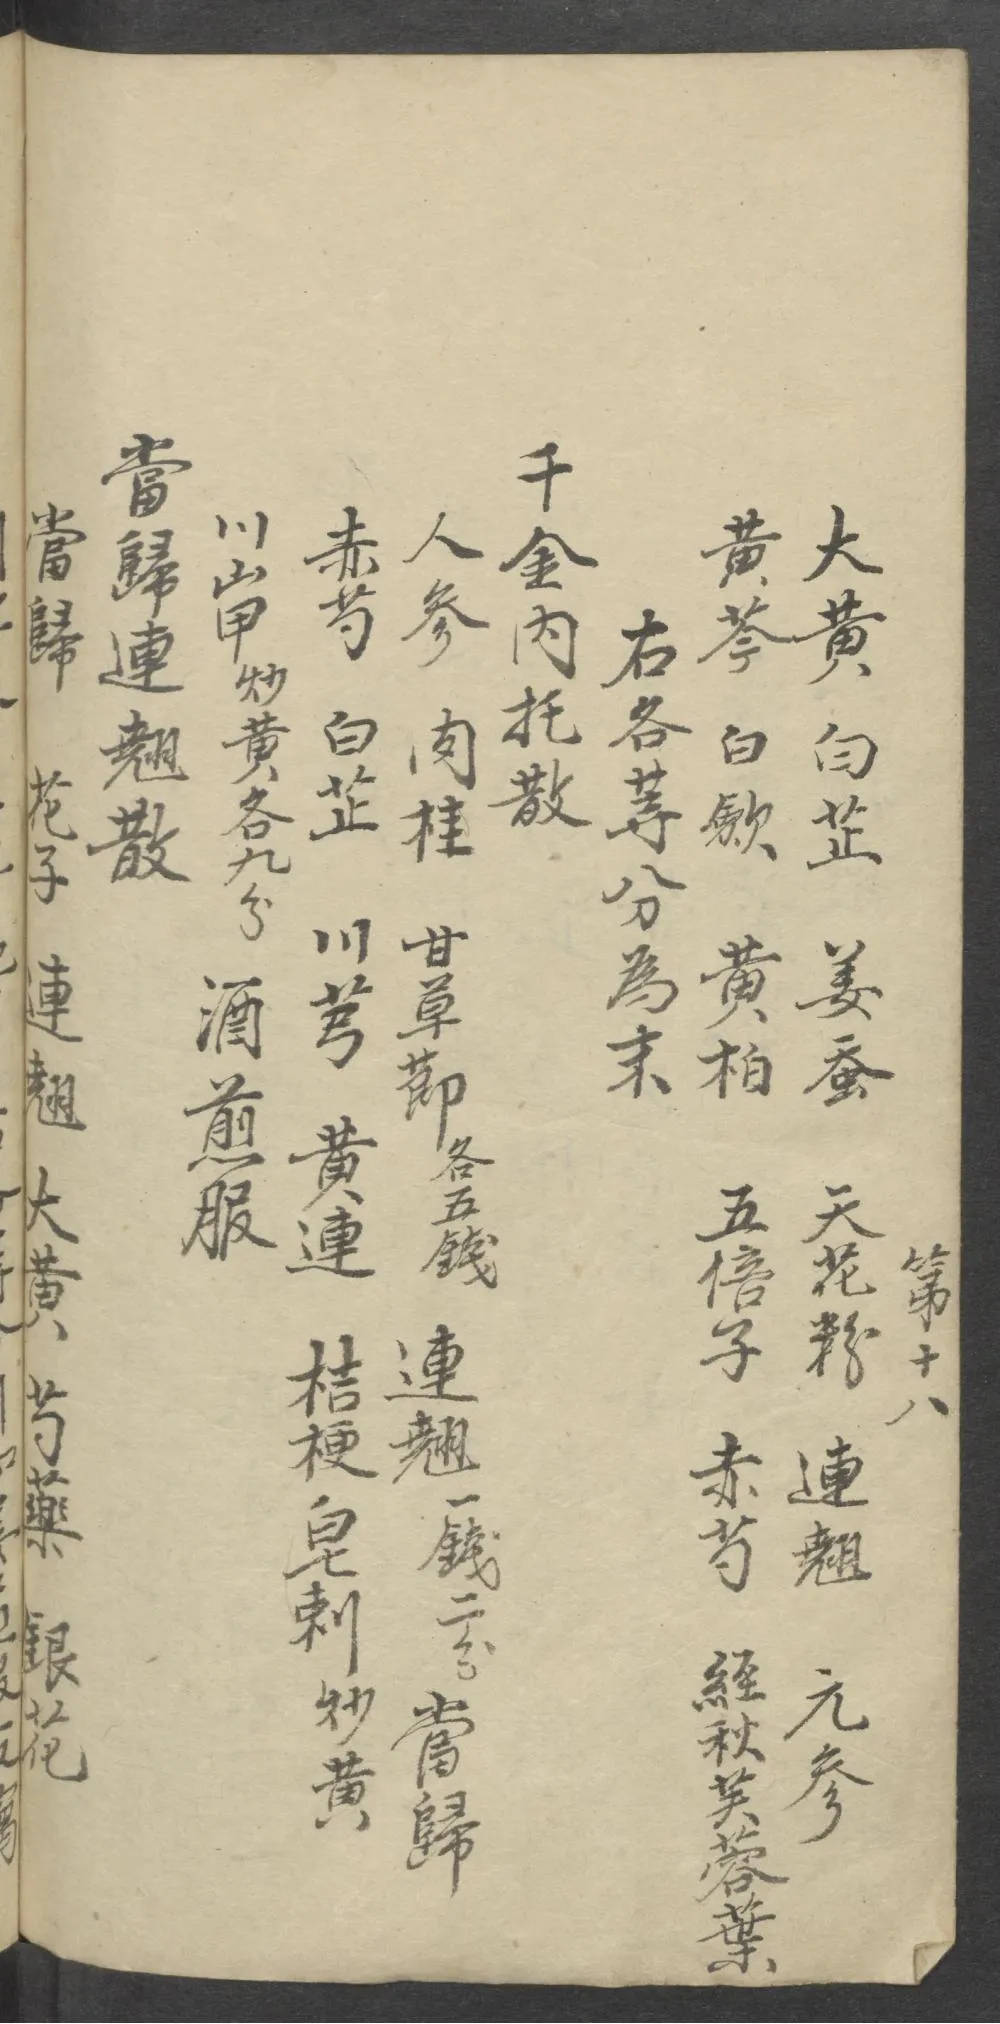 第十八
大黃 白芷 姜蚕 天花粉 連翹 元參
黃芩 白歛 黃柏 五倍子 赤芍 經秋芙蓉葉
右各等分為末
千金內托散
人參 肉桂 甘草節各五錢 連翹一錢二分 當歸
赤芍 白芷 川芎 黃連 桔梗 皂刺炒黃
川山甲炒黃各九分 酒煎服
當歸連翹散
當歸 花子 連翹 大黃 芍藥 銀花